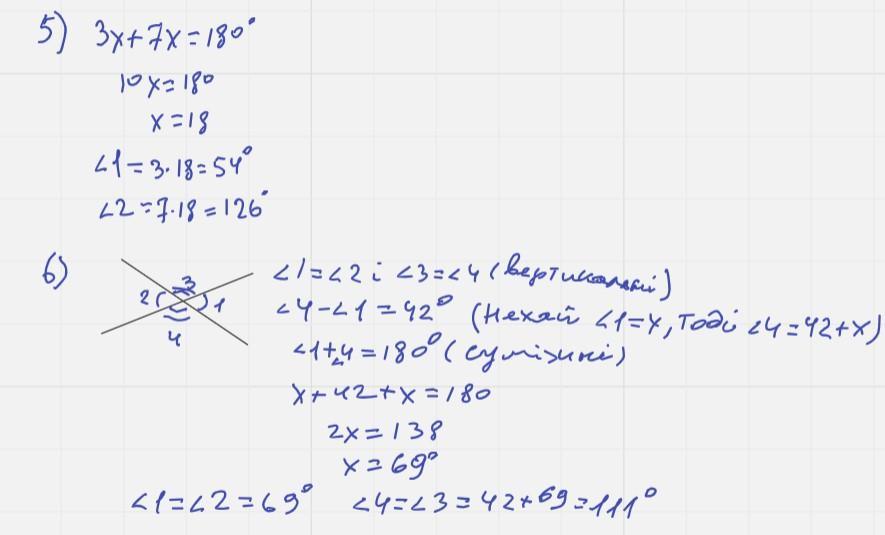 5) 3x+7x=180°
10x=180
x=18
∠1=3·18=54°
∠2=7·18=126°
6) ∠1=∠2 і ∠3=∠4 (вертикальні)
2 3 1
4
∠4-∠1=42° (Нехай ∠1=x, тоді ∠4=42+x)
∠1+∠4=180° (суміжні)
x+42+x=180
2x=138
x=69°
∠1=∠2=69° ∠4=∠3=42+69=111°